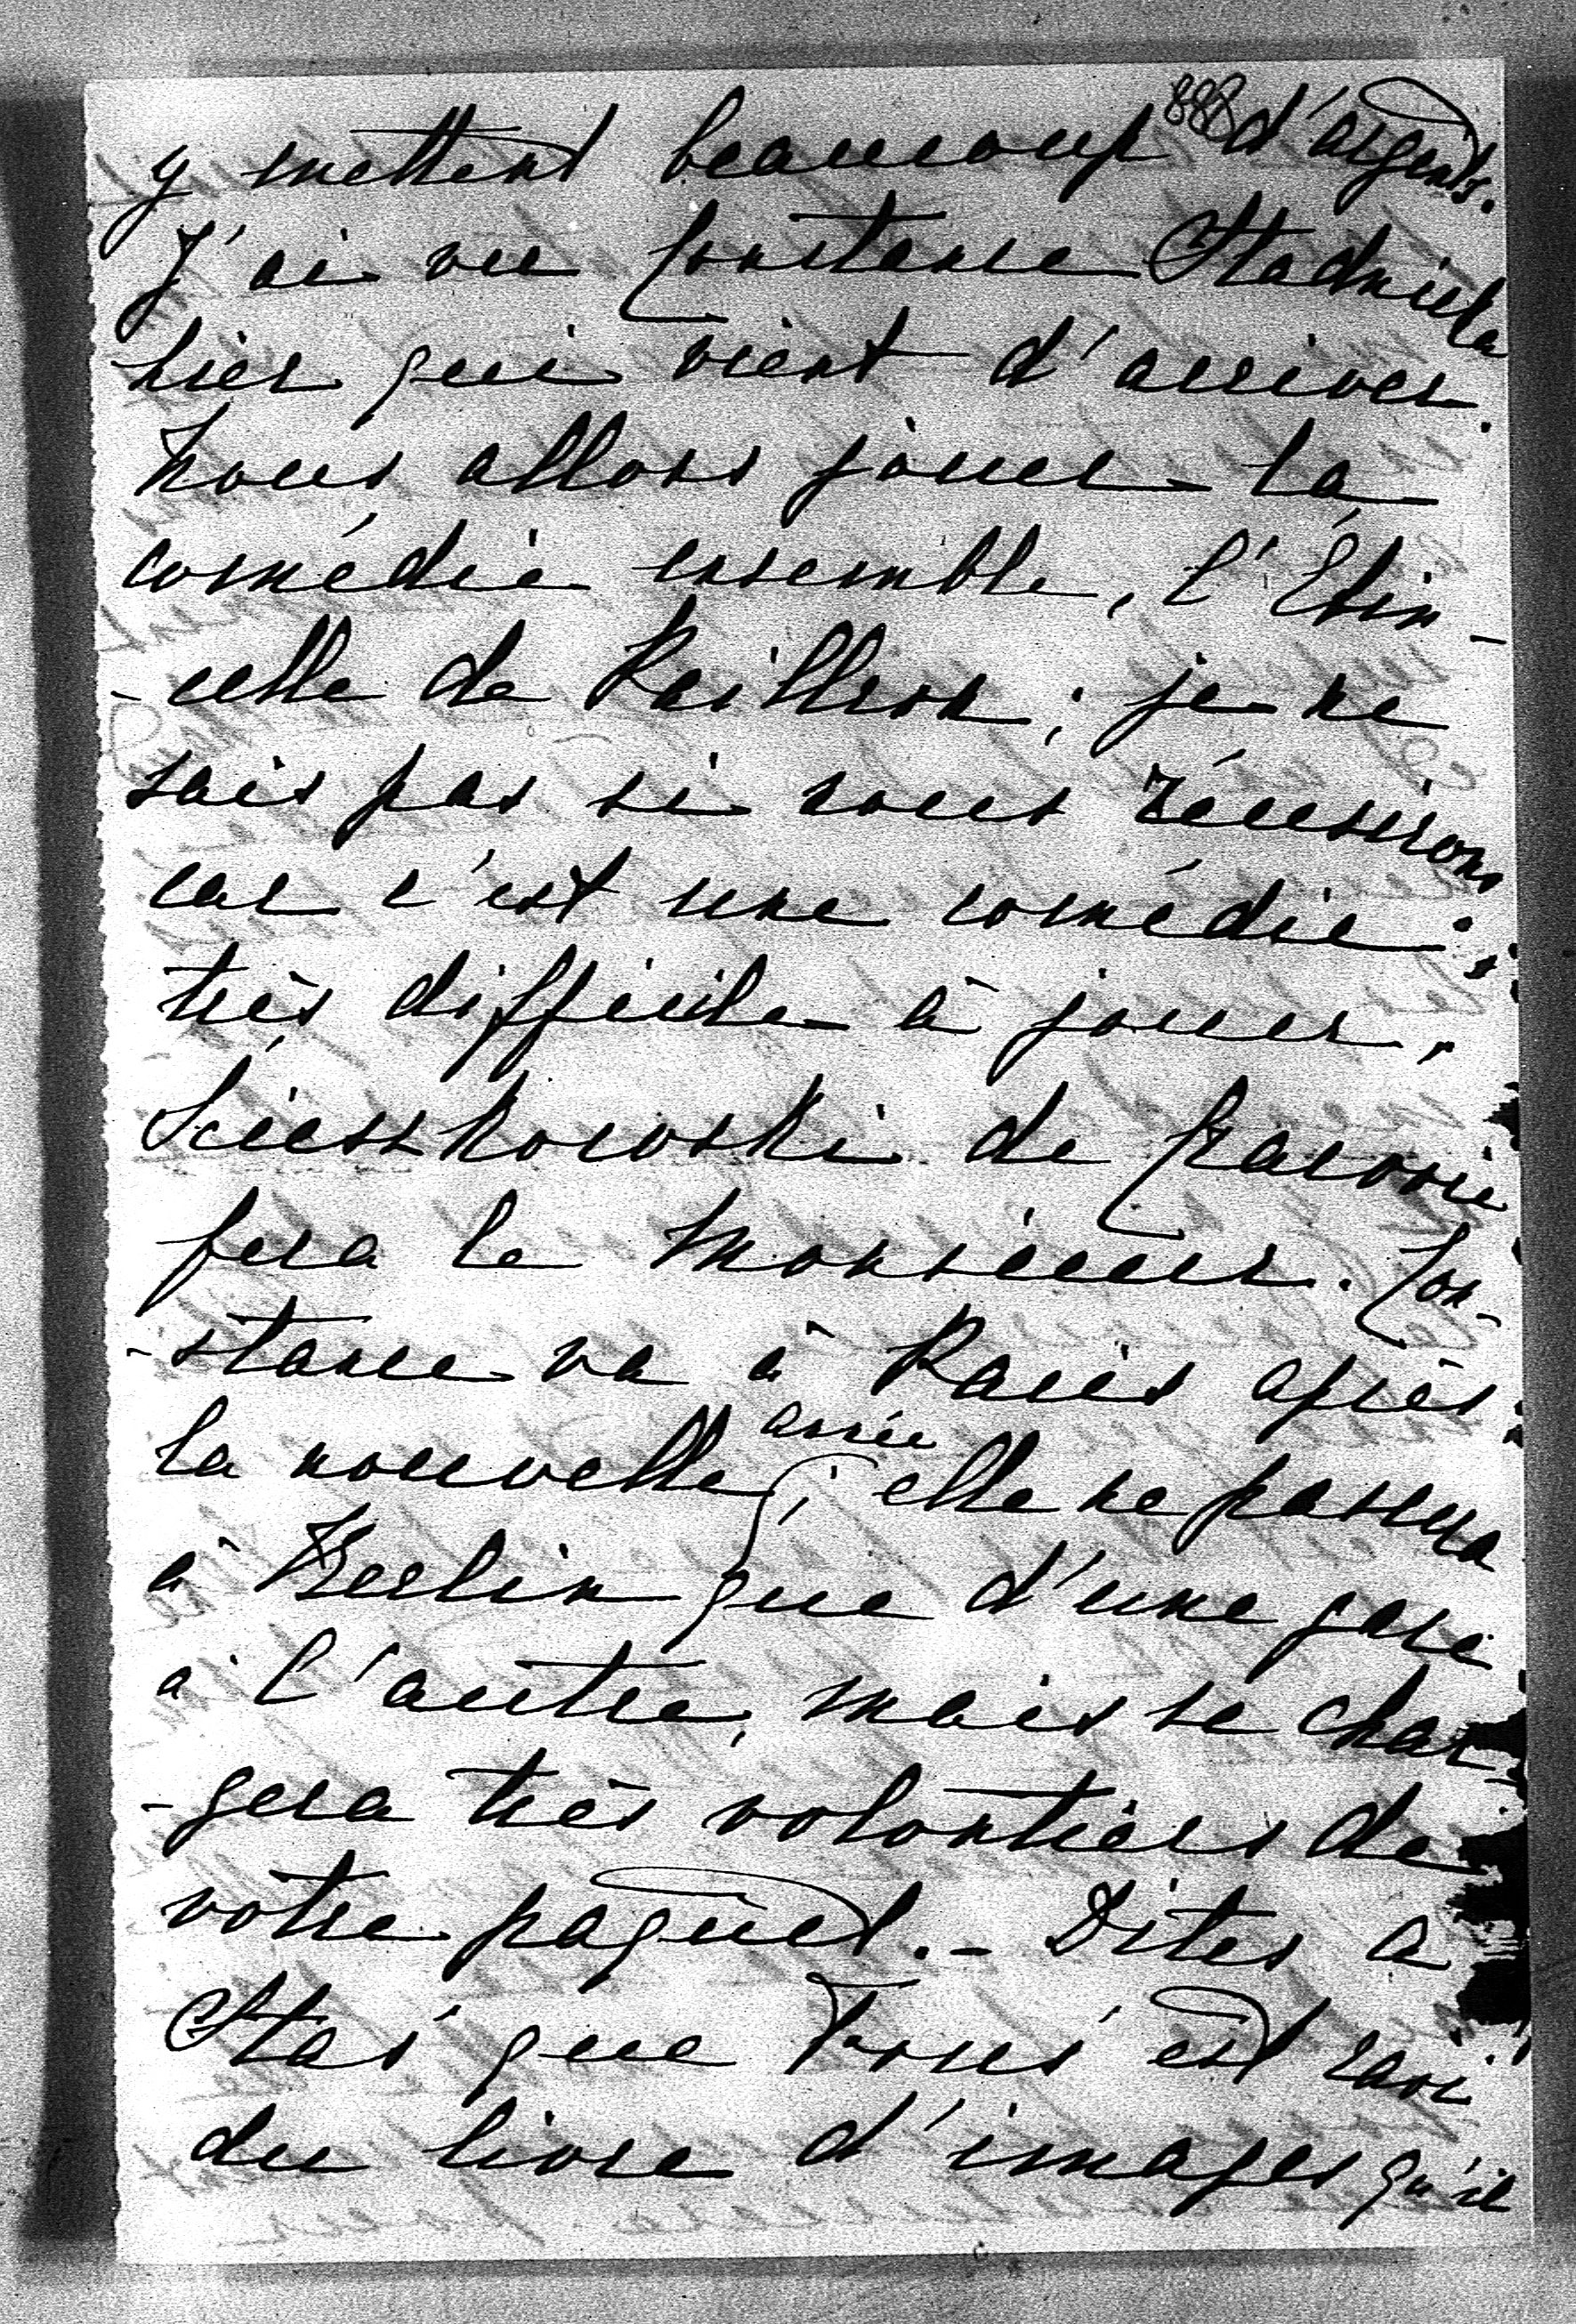 888
y mettent beaucoup d'argents.
J'ai vu Constance Stadnicka
hier qui vient d'arriver.
Nous allons jouer la
comédie ensemble, l'Étin-
-celle de Pailleron; je ne
sais pas si nous réussirons
car c'est une comédie
très difficile à jouer,
Sciesz Kowoski de Cracovie
fera le Monsieur. Con-
-stance va à Paris après
la nouvelle année; elle ne passera
à Berlin que d'une gare
à l'autre, mais se char-
-gera très volontiers de
votre paquet. - Dites a
Staś que Touś est ravi
du livre d'images qu'il